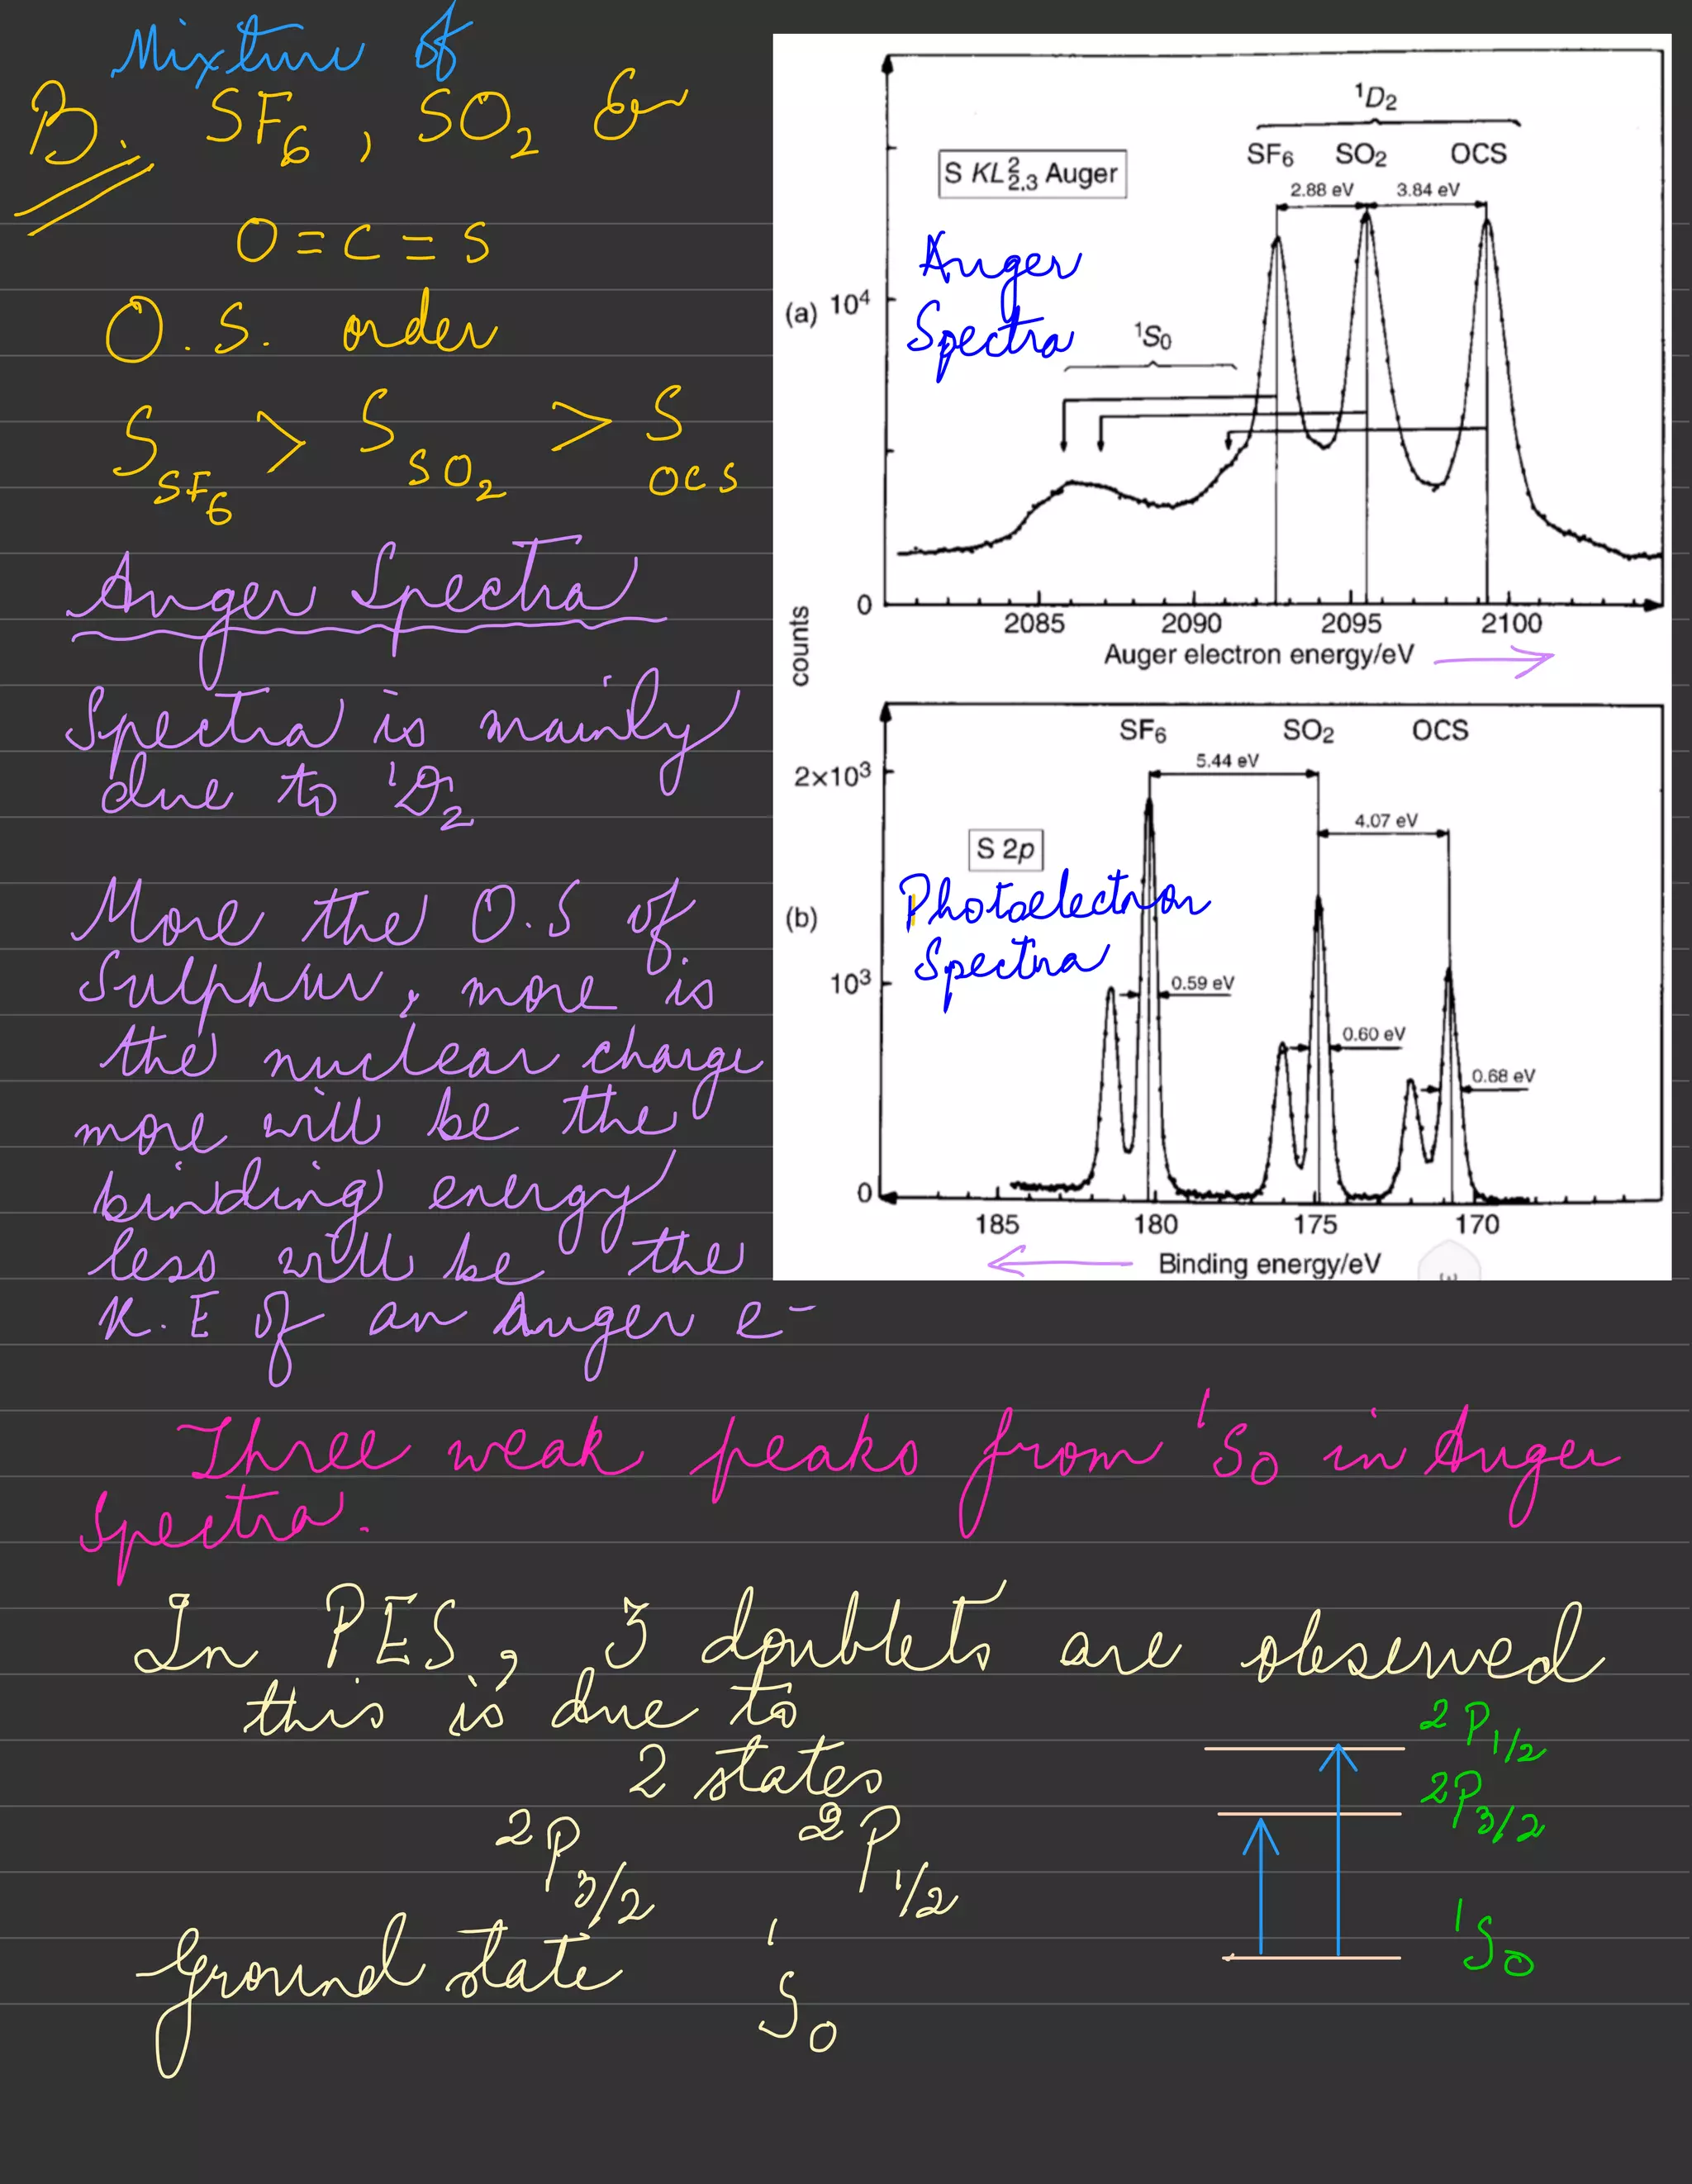 Mixture of
B. SF6, SO2 &
O=C=S
O.S. order
S SF6 > S SO2 > S OCS
Auger Spectra
Spectra is mainly
due to ¹D₂
More the O.S of
Sulphur, more is
the nuclear charge
more will be the
binding energy
less will be the
K.E of an Auger e⁻
¹D₂
SF6 SO2 OCS
S KL²2,3 Auger
2.88 eV 3.84 eV
Auger
Spectra
(a)
10⁴
¹S₀
0
2085 2090 2095 2100
Auger electron energy/eV
counts
SF6 SO2 OCS
5.44 eV
2×10³
4.07 eV
S 2p
(b)
Photoelectron
Spectra
10³
0.59 eV
0.60 eV
0.68 eV
0
185 180 175 170
Binding energy/eV
Three weak peaks from ¹S₀ in Auger
Spectra.
In PES, 3 doublets are observed
this is due to
2 states
²P3/2 ²P1/2
Ground state ¹S₀
²P1/2
²P3/2
¹S₀